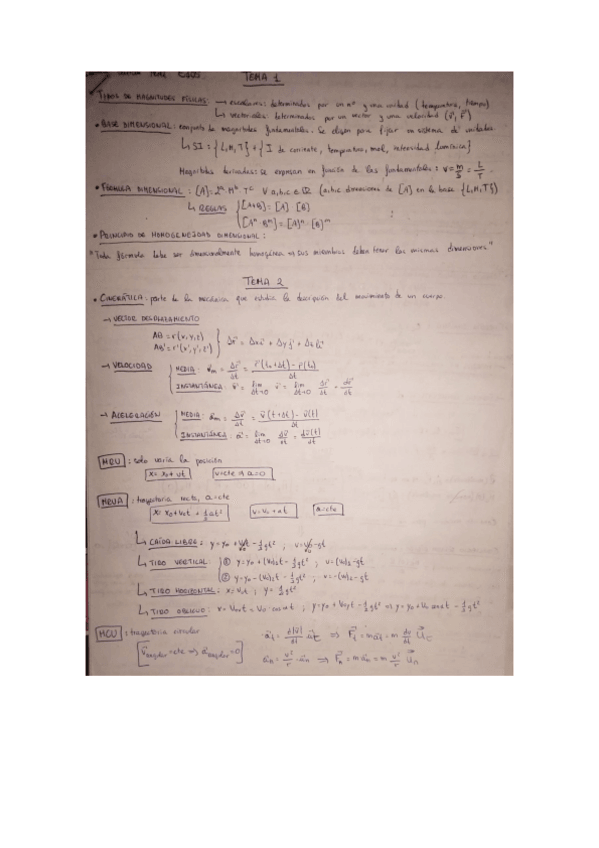 TEMA 1
• TIPOS DE MAGNITUDES FÍSICAS: → escalares: determinados por un nº y una unidad (temperatura, tiempo)
↳ vectoriales: determinados por un vector y una velocidad (v⃗, F⃗)
• BASE DIMENSIONAL: conjunto de magnitudes fundamentales. Se eligen para fijar un sistema de unidades
↳ SI = {L, M, T} + {I de corriente, temperatura, mol, intensidad lumínica}
Magnitudes derivadas: se expresan en función de las fundamentales: v = m/s = L/T.
• FÓRMULA DIMENSIONAL: [A] = Lᵃ Mᵇ Tᶜ ∀ a,b,c ∈ ℝ (a,b,c dimensiones de [A] en la base {L,M,T})
↳ REGLAS { [A·B] = [A] [B]
[Aⁿ·Bᵐ] = [A]ⁿ·[B]ᵐ
• PRINCIPIO DE HOMOGENEIDAD DIMENSIONAL:
"Toda fórmula debe ser dimensionalmente homogénea → sus miembros deben tener las mismas dimensiones"
TEMA 2
• CINEMÁTICA: parte de la mecánica que estudia la descripción del movimiento de un cuerpo.
→ VECTOR DESPLAZAMIENTO
AB = r(x,y,z)
AB' = r'(x',y',z') } Δr⃗ = Δx i⃗ + Δy j⃗ + Δz k⃗
→ VELOCIDAD { MEDIA: v⃗m = Δr⃗/Δt = r⃗(t₀+Δt) - r⃗(t₀)/Δt
INSTANTÁNEA: v⃗ = lim Δt→0 v⃗ = lim Δt→0 Δr⃗/Δt = dr⃗/dt
→ ACELERACIÓN { MEDIA: a⃗m = Δv⃗/Δt = v⃗(t+Δt) - v⃗(t)/Δt
INSTANTÁNEA: a⃗ = lim Δt→0 Δv⃗/Δt = dv⃗(t)/dt
MRU : solo varía la posición
x = x₀ + vt v = cte → a = 0
MRUA : trayectoria recta, a = cte
x = x₀ + v₀t + ½at² v = v₀ + at a = cte
↳ CAÍDA LIBRE: y = y₀ + v₀t - ½gt² ; v = v₀ - gt
↳ TIRO VERTICAL: ① y = y₀ + (v₀)₁t - ½gt² ; v = (v₀)₁ - gt
② y = y₀ - (v₀)₂t - ½gt² ; v = -(v₀)₂ - gt
↳ TIRO HORIZONTAL: x = v₀t ; y = ½gt²
↳ TIRO OBLICUO: x = v₀ₓt = v₀ cosα t ; y = y₀ + v₀yt - ½gt² → y = y₀ + v₀ t - ½gt²
MCU : trayectoria circular a⃗t = d|v⃗|/dt u⃗t ⇒ F⃗t = m a⃗t = m dv/dt u⃗t
[v⃗angular = cte → a⃗angular = 0] a⃗n = v²/r · u⃗n ⇒ F⃗n = m a⃗n = m v²/r u⃗n